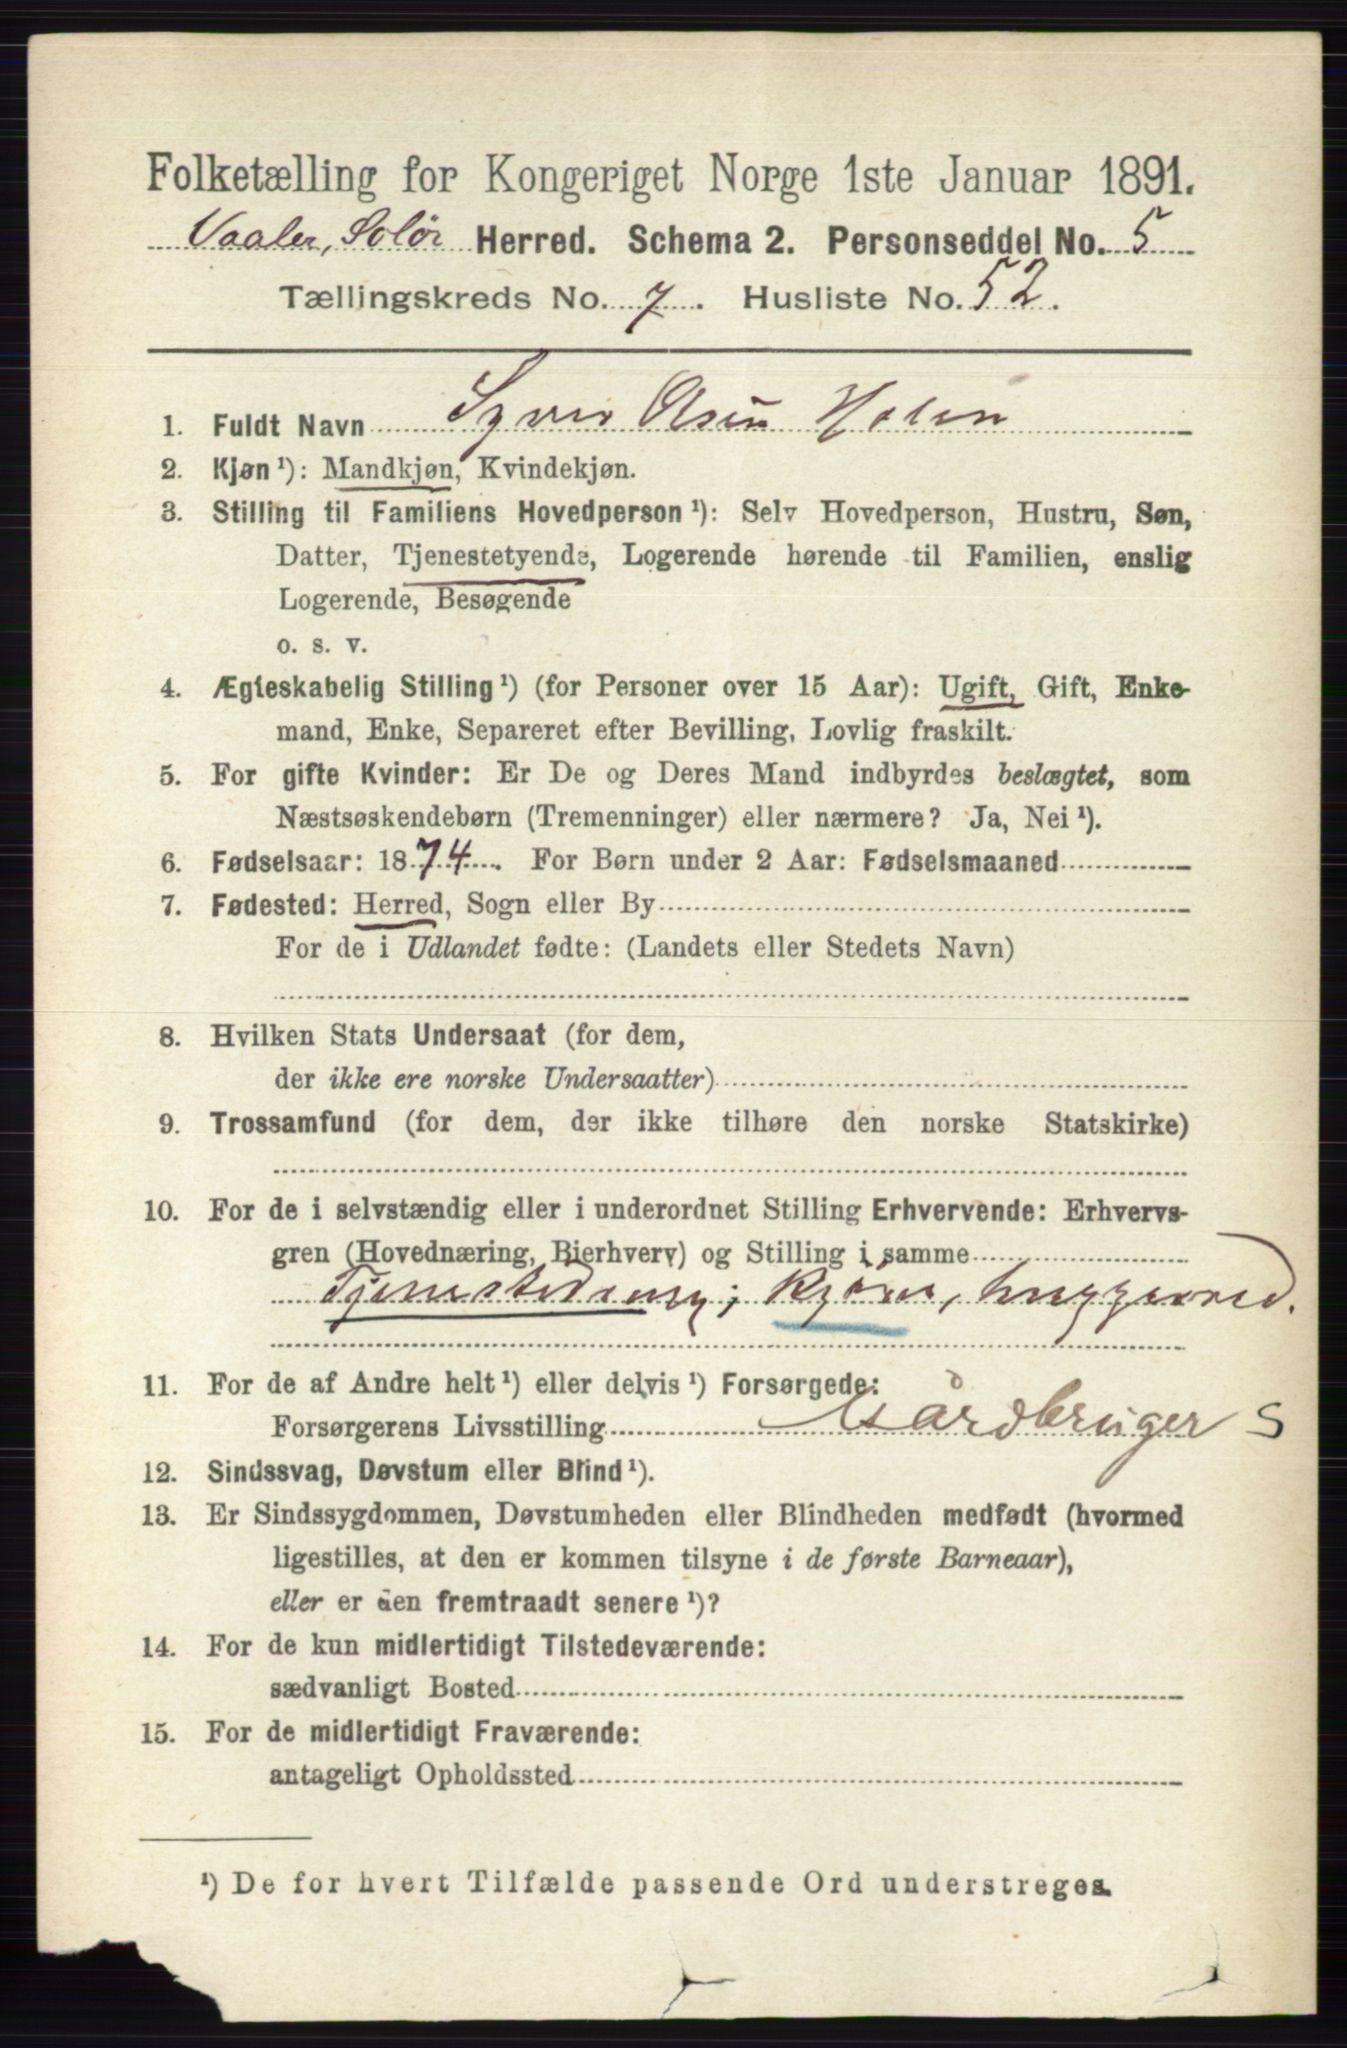 Folketælling for Kongeriget Norge 1ste Januar 1891.
Vaaler, Solør Herred. Schema 2. Personseddel No. 5
Tællingskreds No. 7. Husliste No. 52.
1. Fuldt Navn Syver Olsen Holen
2. Kjøn ¹): Mandkjøn, Kvindekjøn.
3. Stilling til Familiens Hovedperson ¹): Selv Hovedperson, Hustru, Søn,
Datter, Tjenestetyende, Logerende hørende til Familien, enslig
Logerende, Besøgende
o. s. v.
4. Ægteskabelig Stilling ¹) (for Personer over 15 Aar): Ugift, Gift, Enke-
mand, Enke, Separeret efter Bevilling, Lovlig fraskilt.
5. For gifte Kvinder: Er De og Deres Mand indbyrdes beslægtet, som
Næstsøskendebørn (Tremenninger) eller nærmere? Ja, Nei ¹).
6. Fødselsaar: 1874. For Børn under 2 Aar: Fødselsmaaned
7. Fødested: Herred, Sogn eller By
For de i Udlandet fødte: (Landets eller Stedets Navn)
8. Hvilken Stats Undersaat (for dem,
der ikke ere norske Undersaatter)
9. Trossamfund (for dem, der ikke tilhøre den norske Statskirke)
10. For de i selvstændig eller i underordnet Stilling Erhvervende: Erhvervs-
gren (Hovednæring, Bierhverv) og Stilling i samme
Tjenestedreng; kjører, huggerved.
11. For de af Andre helt ¹) eller delvis ¹) Forsørgede:
Forsørgerens Livsstilling Gårdbruger S
12. Sindssvag, Døvstum eller Blind ¹).
13. Er Sindssygdommen, Døvstumheden eller Blindheden medfødt (hvormed
ligestilles, at den er kommen tilsyne i de første Barneaar),
eller er den fremtraadt senere ¹)?
14. For de kun midlertidigt Tilstedeværende:
sædvanligt Bosted
15. For de midlertidigt Fraværende:
antageligt Opholdssted
¹) De for hvert Tilfælde passende Ord understreges.